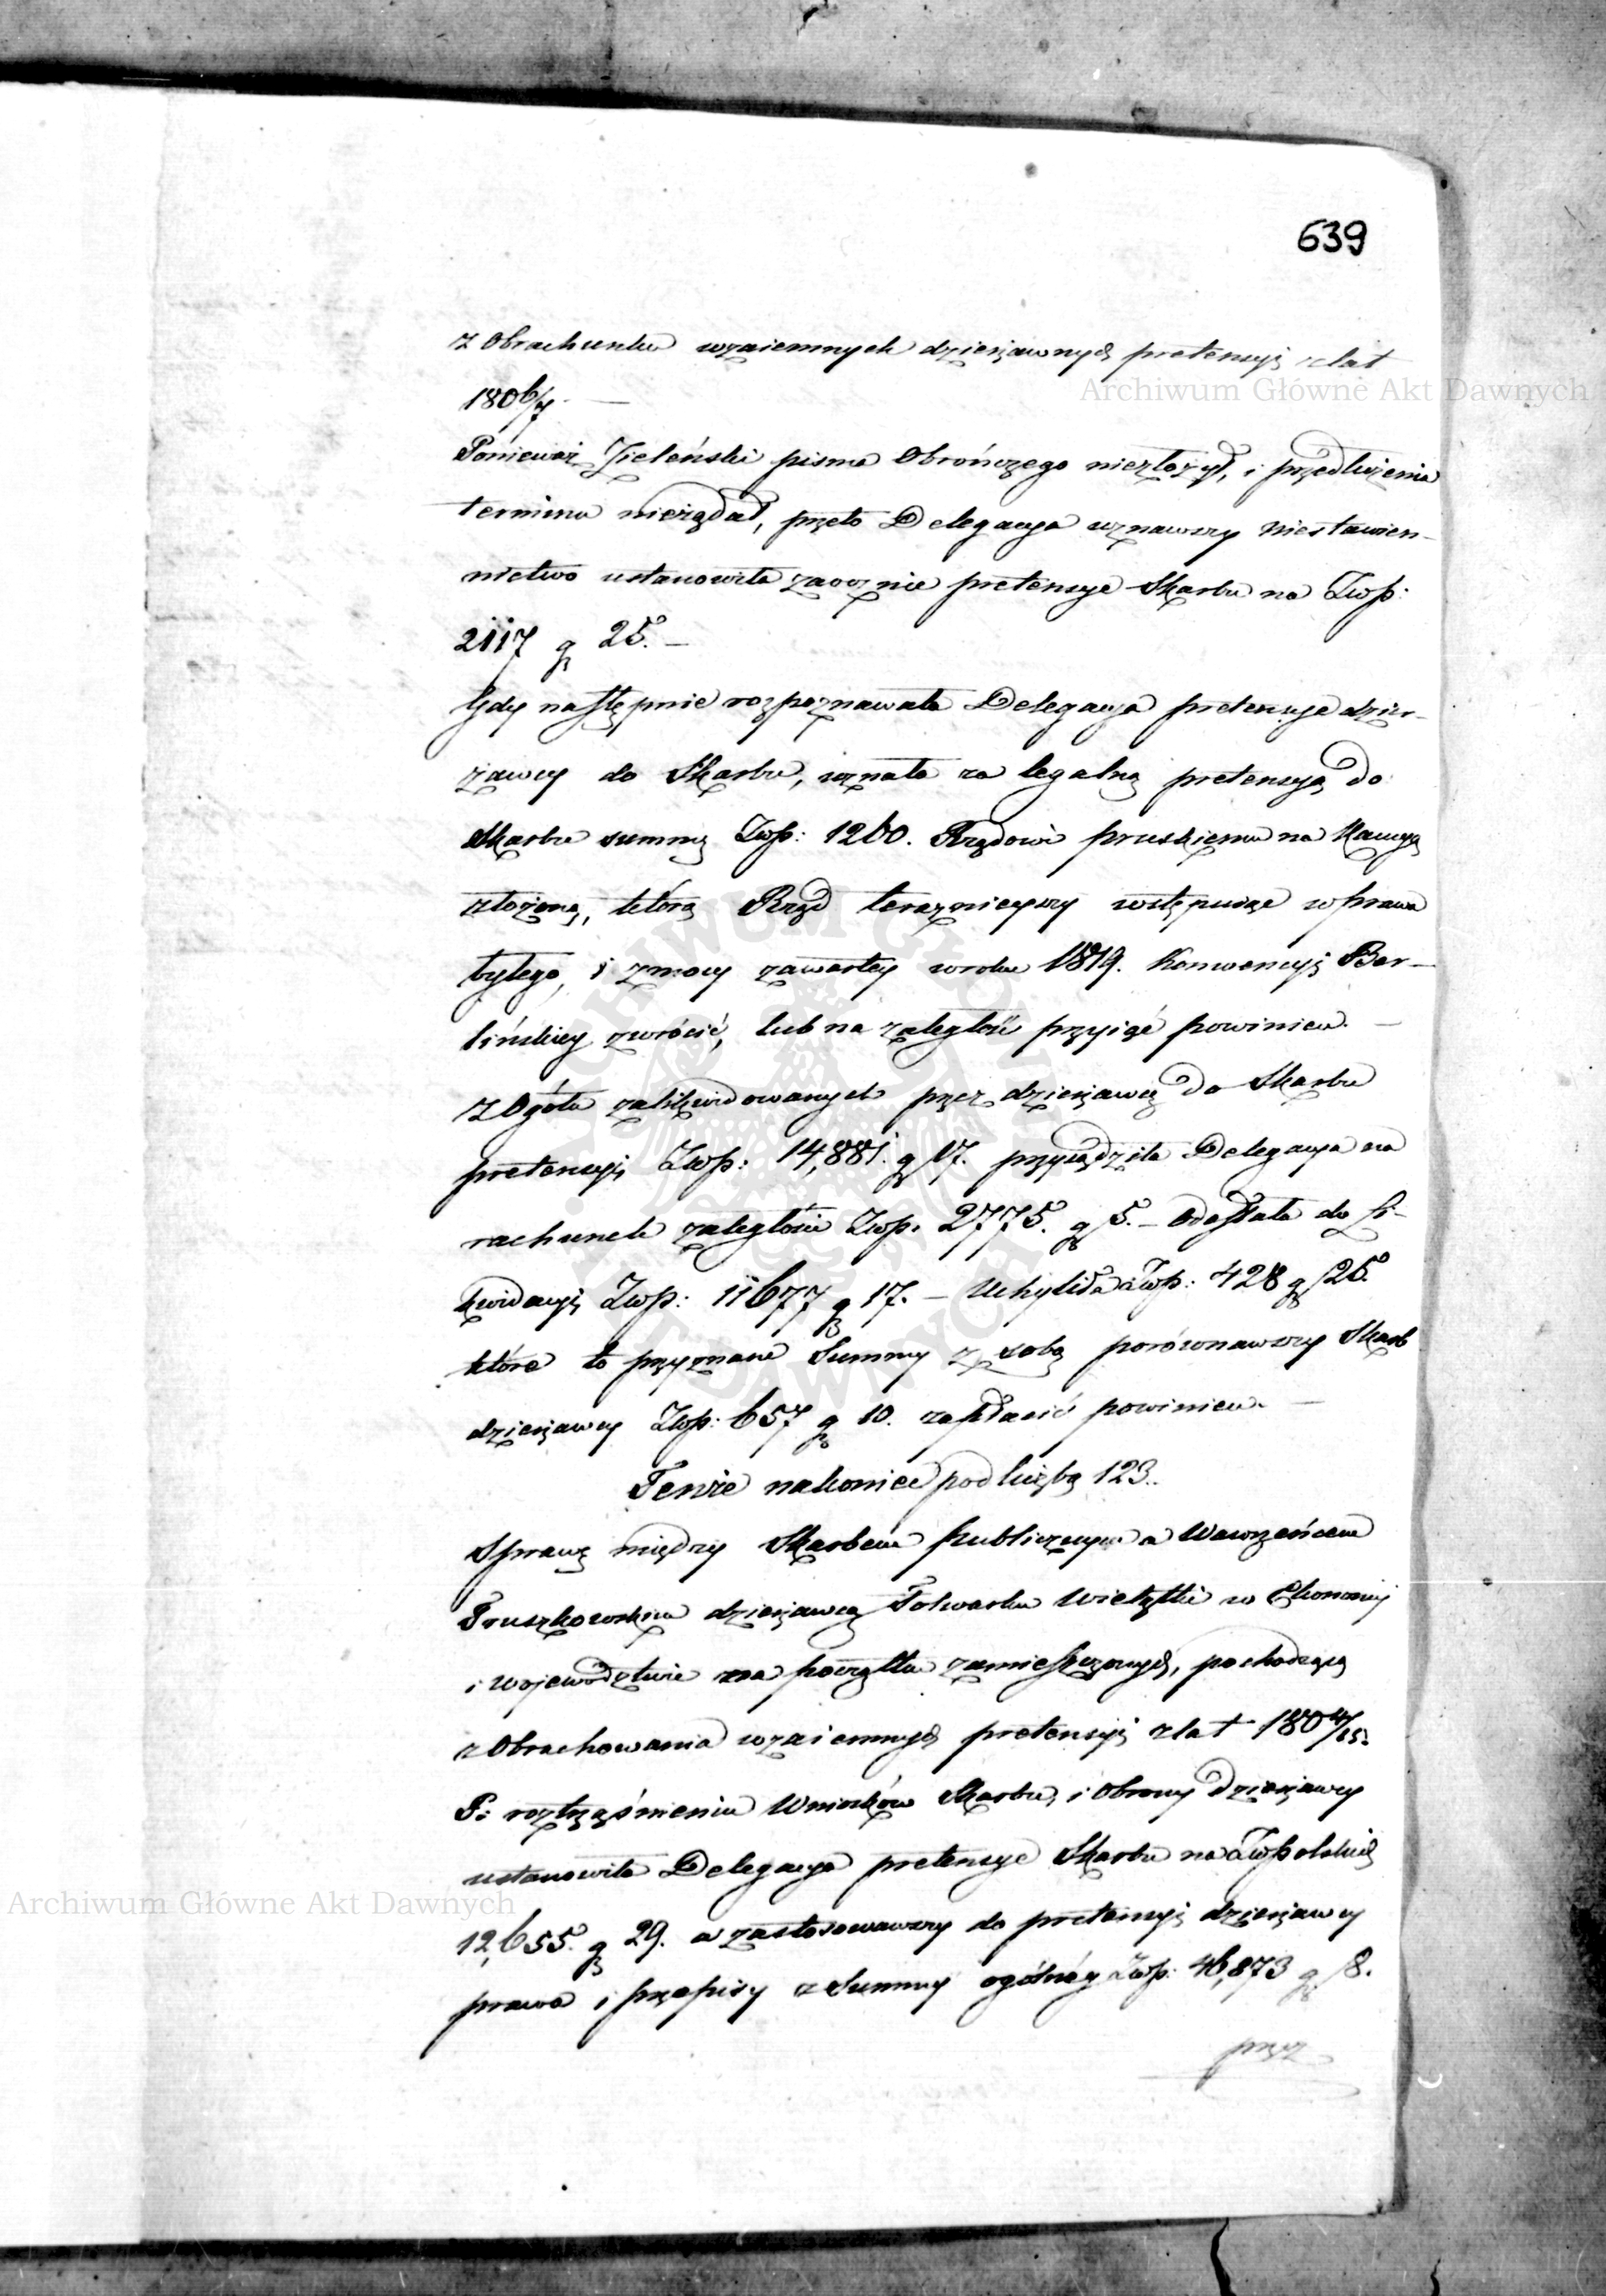 639
z Obrachunku wzaiemnych dzierżawnych pretensyi z lat
1806/7. —
Ponieważ Zieleński pisma Obrończego niezłożył, i przedłużenia
terminu nieżądał, przeto Delegacya uznawszy niestawien-
nictwo ustanowiła zaocznie pretensye Skarbu na Złp:
2117 gr 25. —
Gdy następnie rozpoznawała Delegacya pretensye dzier-
żawcy do Skarbu, uznała za legalną pretensyą do
Skarbu summę Złp: 1260. Rządowi pruskiemu na Kaucyą
złożoną, którą Rząd teraznieyszy wstępuiąc w prawa
byłego, i z mocy zawartey w roku 1819. Konwencyi Ber-
lińskiey zwrócić, lub na zaległość przyiąć powinien. —
Z Ogółu zalikwidowanych przez dzierżawcę do Skarbu
pretensyi Złp: 14,881. gr 17. przysądziła Delegacya na
rachunek zaległości Złp. 2775. gr 5. — Odesłała do Li-
kwidacyi Złp: 11677 gr 17. — Uchyliła Złp: 428 gr 25.
które to przyznane Summy z sobą porównawszy Skarb
dzierżawcy Złp: 657 gr 10. zapłacić powinien. —
Tenże nakoniec pod liczbą 123..
Sprawę między Skarbem Publicznym a Wawrzeńcem
Pruszkowskim dzierżawcą Folwarku Wielątki w Ekonomij
i Województwie na początku zamieszczonych, pochodzącą
z Obrachowania wzaiemnych pretensyi z lat 1804/15.
Po roztrząśnieniu Wniosków Skarbu, i Obrony dzierżawcy
ustanowiła Delegacya pretensye Skarbu na Złpolskich
12,655. gr 29. a zastosowawszy do pretensyi dzierżawcy
prawa i przepisy z Summy ogólnéy Złp: 46,873 gr 8.
przez
Archiwum Główne Akt Dawnych
Archiwum Główne Akt Dawnych
ARCHIWUM GŁÓWNE AKT DAWNYCH